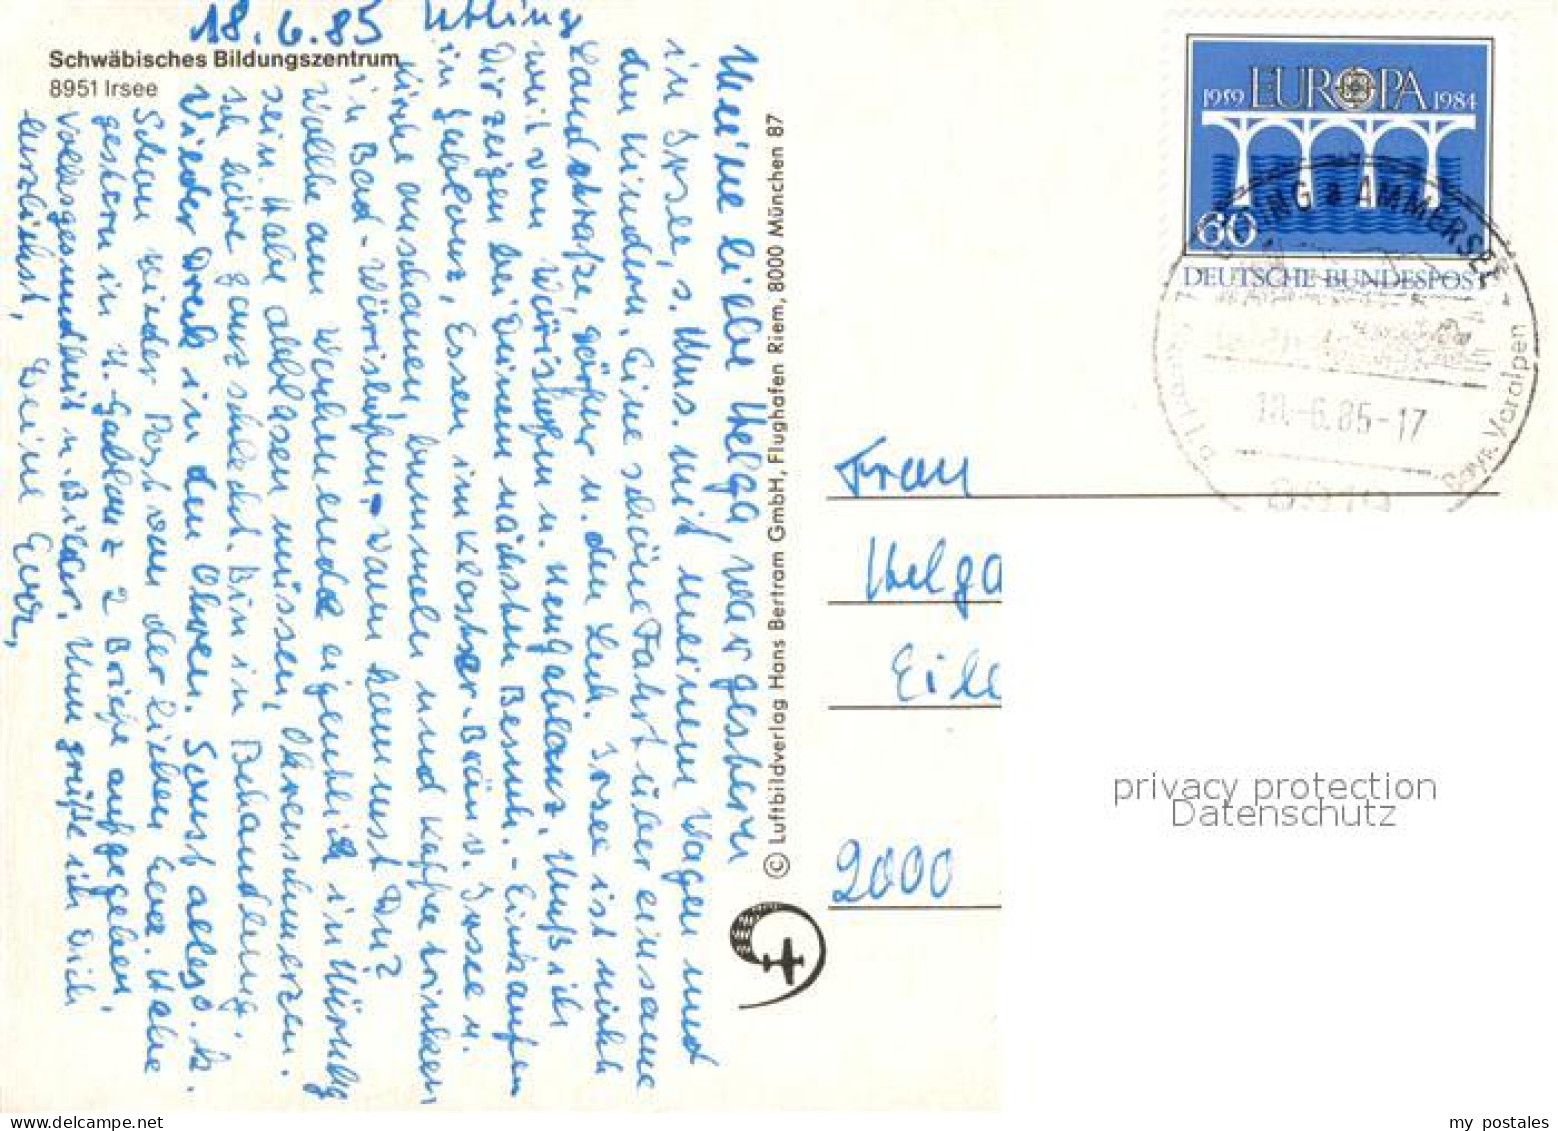 18.6.85 Utting
Schwäbisches Bildungszentrum
8951 Irsee
Meine liebe Helga, war gestern
in Irsee, s. Mus. mit meinem Wagen und
den Kindern. Eine schöne Fahrt über einsame
Landstraße, Dörfer u. den Lech. Irsee ist nicht
weit von Wörishofen u. Neugablonz. Muß ich
Dir zeigen bei Deinem nächsten Besuch. - Einkaufen
in Gablonz, Essen im Kloster-Bräu v. Irsee u.
Kirche anschauen, bummeln und Kaffee trinken
in Bad-Wörishofen. Wann kommst Du?
Wollte am Wochenende eigentlich in Nürnbg
sein. Habe abblasen müssen, Ohrenschmerzen.
Ich höre ganz schlecht. Bin in Behandlung.
Wieder Dreck in den Ohren. Sonst alles o.k.
Schon wieder Post von der lieben Eva. Habe
gestern in N.-Gablonz 2 Briefe aufgegeben,
Volksgesundheit u. Bilder. Nun grüße ich Dich
herzlichst, Deine
© Luftbildverlag Hans Bertram GmbH, Flughafen Riem, 8000 München 87
1959 EUROPA 1984
60
DEUTSCHE BUNDESPOST
AMMERSEE
18.-6.85-17
Bayr. Voralpen
Frau
Helga
Eil
2000
privacy protection
Datenschutz
my postales